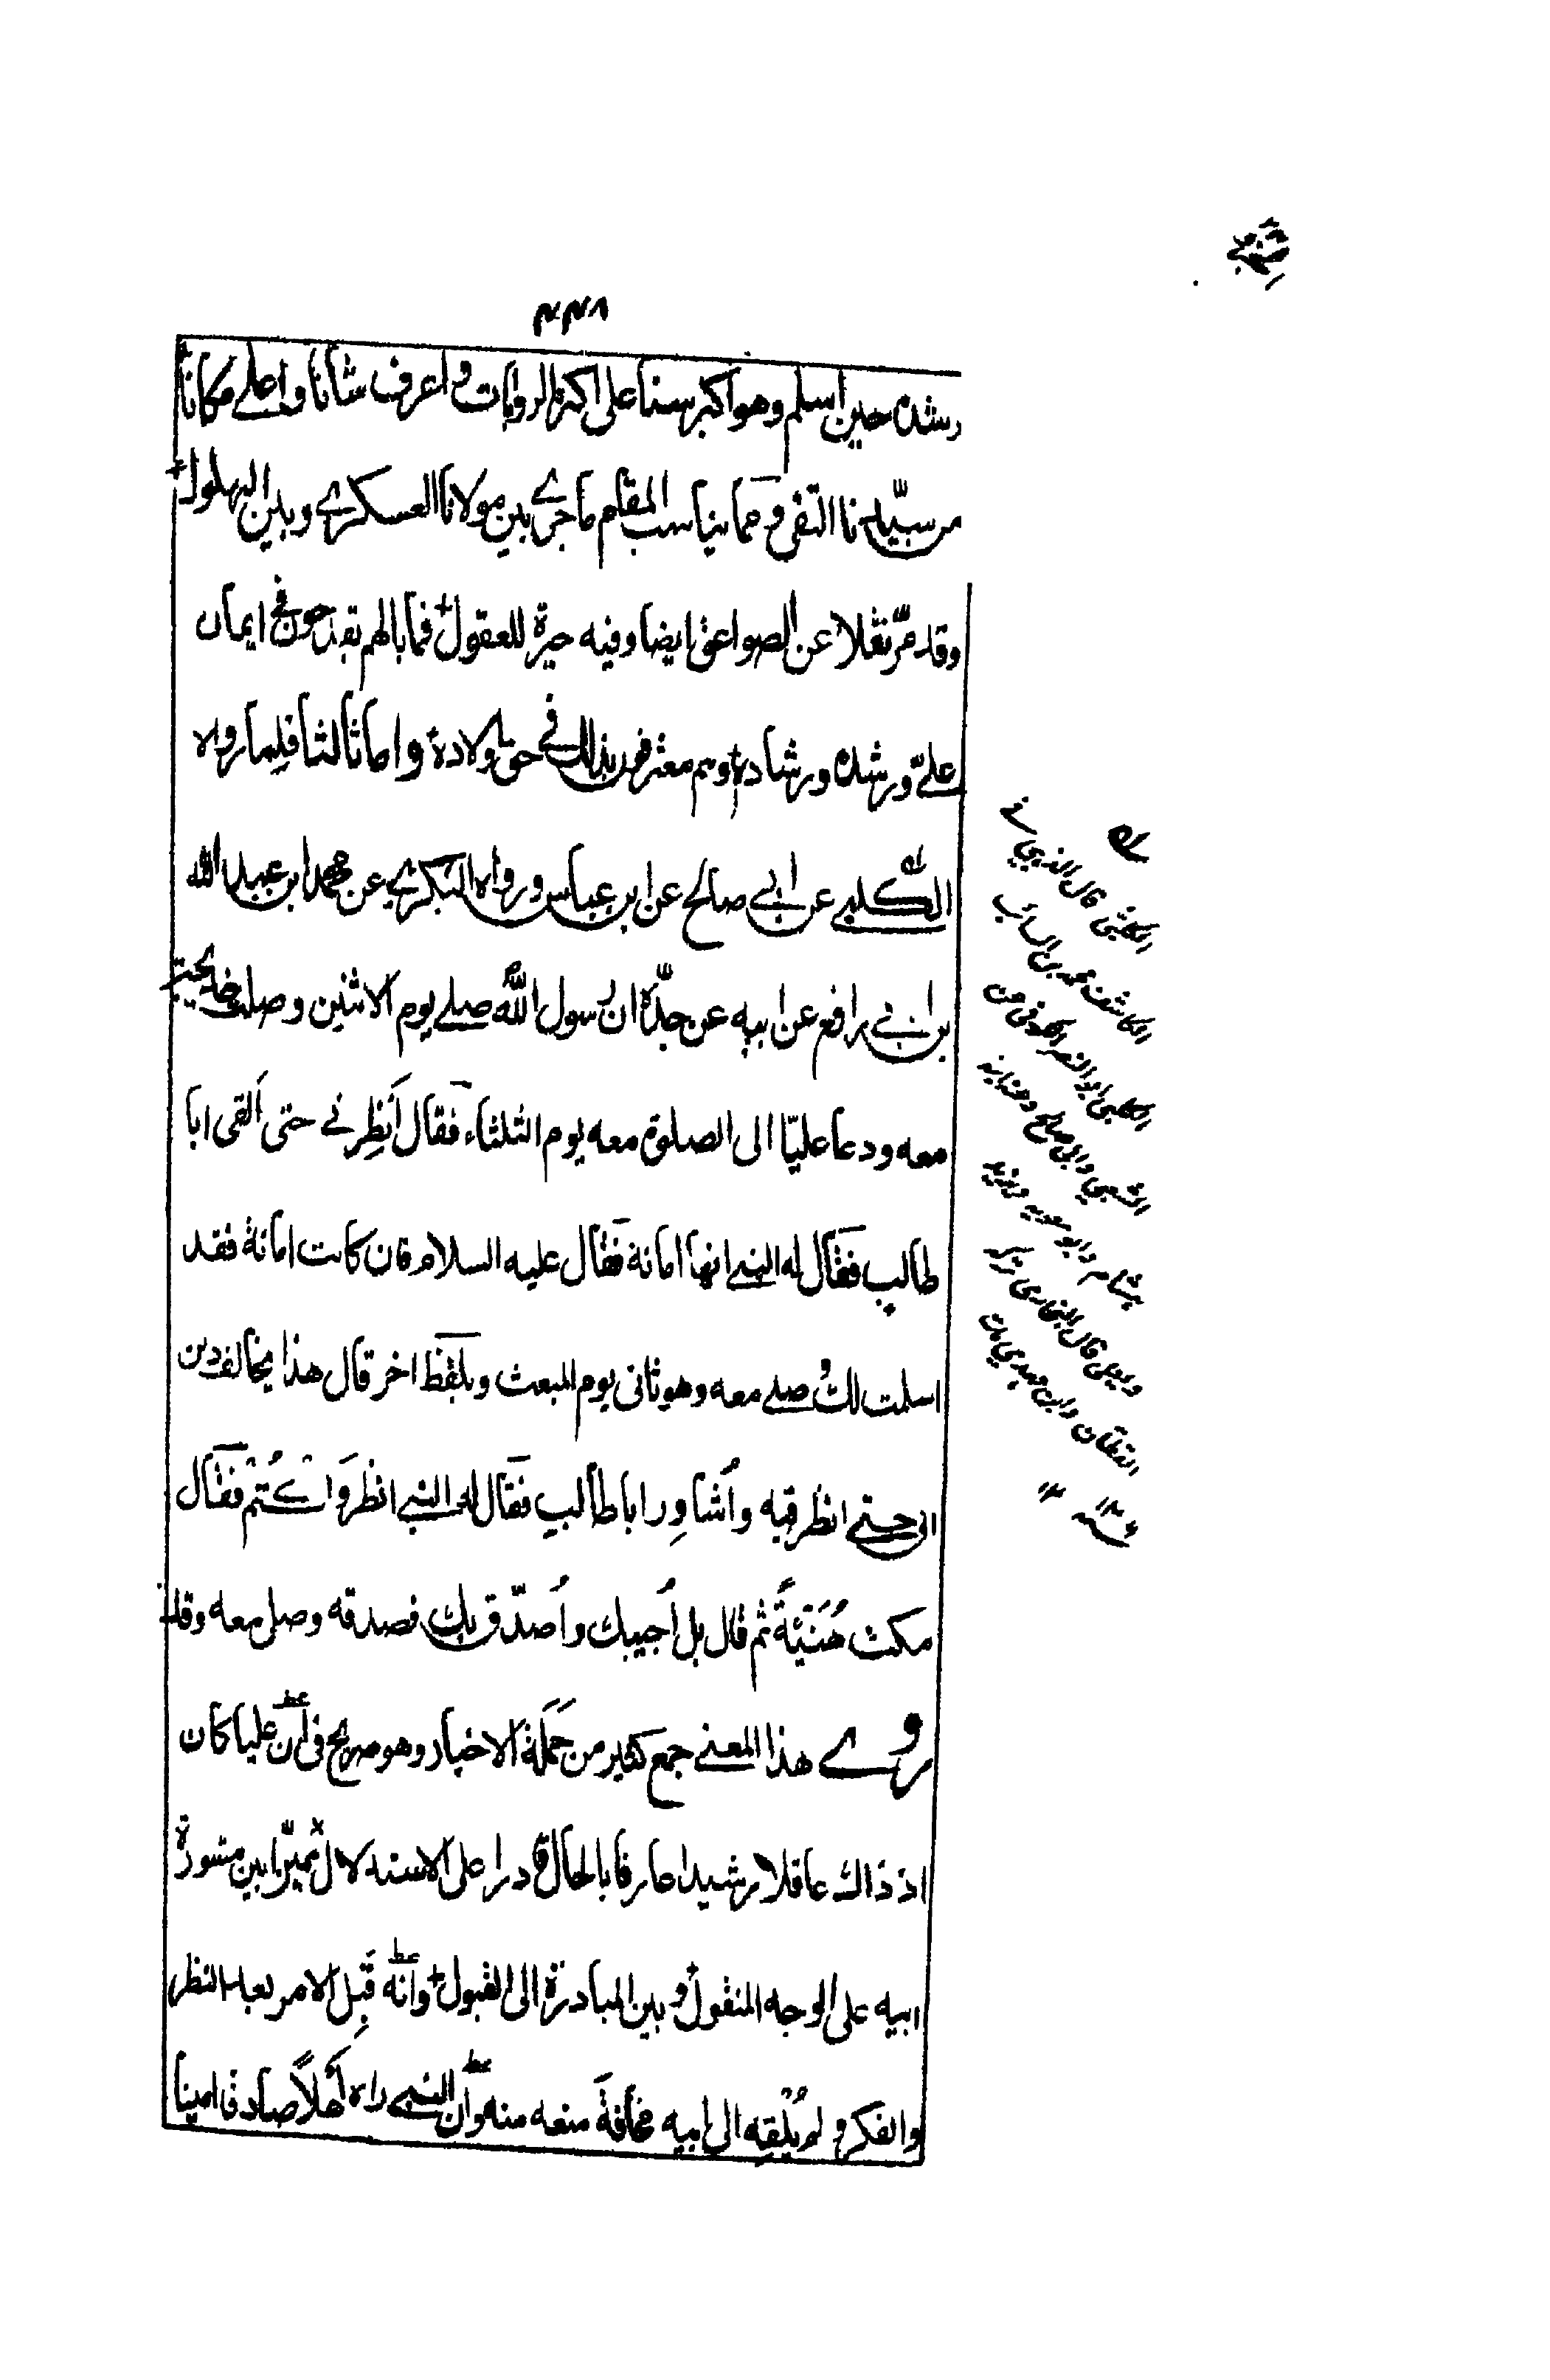 ٣٣٨
رشده حين اسلم وهو اكبر سنا على اكثر الروايات و اعرف شأنا و اعلى مكانا
من سيدنا التقى و مما يناسب المقام ما جرى بين مولانا العسكرى وبين البهلول
وقد مرّ نقلا عن الصواعق ايضا وفيه حيرة للعقول فما بالهم يقدحون فى ايمان
علىّ و رشده و رشاده وهم معترفون بذلك فى حق اولاده و اما ثالثا فلما رواه
الكلبى عن ابى صالح عن ابن عباس ورواه البكرى عن محمد ابن عبيد الله
بن ابى رافع عن ابيه عن جدّه ان رسول الله صلى يوم الاثنين وصلت خديجة
معه ودعا عليّا الى الصلوة معه يوم الثلثاء فقال أنظِرنى حتى ألقى ابا
طالب فقال له النبى انها امانة فقال عليه السلام فان كانت امانة فقد
اسلمت لك وصلى معه وهو ثانى يوم المبعث وبلفظ اخر قال هذا يخالف دين
ابى حتى انظر فيه وأشاوِر ابا طالب فقال له النبى انظر وَاكتُم فقال
مكث هُنَيئَةً ثم قال بل أجيبك وأصدّق بك فصدقه وصلى معه وقد
روى هذا المعنى جمع كثير من حَمَلَة الاخبار وهو صريح فى انّ عليا كان
اذ ذاك عاقلا رشيدا عارفا بالحال قادرا على الاستدلال مميّزا بين مشورة
ابيه على الوجه المنقول و بين المبادرة الى القبول وانّه قَبِل الامر بعد النظر
والفكر و لم يُلقِه الى ابيه مخافةَ منعه منه وانّ النبى راه أهلاً صادقا امينا
له
الكلبى قال الذهبي فى
الكاشف محمد بن السائب
الكلبى ابو النضر الكوفى عن
الشعبي وابى صالح وعنه ابنه
هشام وابو معوية ويزيد
ويعلى قال البخارى تركه
القطان وابن مهدي مات